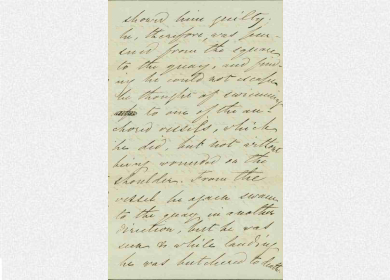 showed him guilty;
he, therefore, was pur-
sued from the square
to the quay, and find-
ing he could not escape
he thought of swimming
to one of the an-
chored vessels, which
he did, but not without
being wounded on the
shoulder. From the
vessel he again swam
to the quay in another
direction, but he was
seen & while landing
he was butchered to death